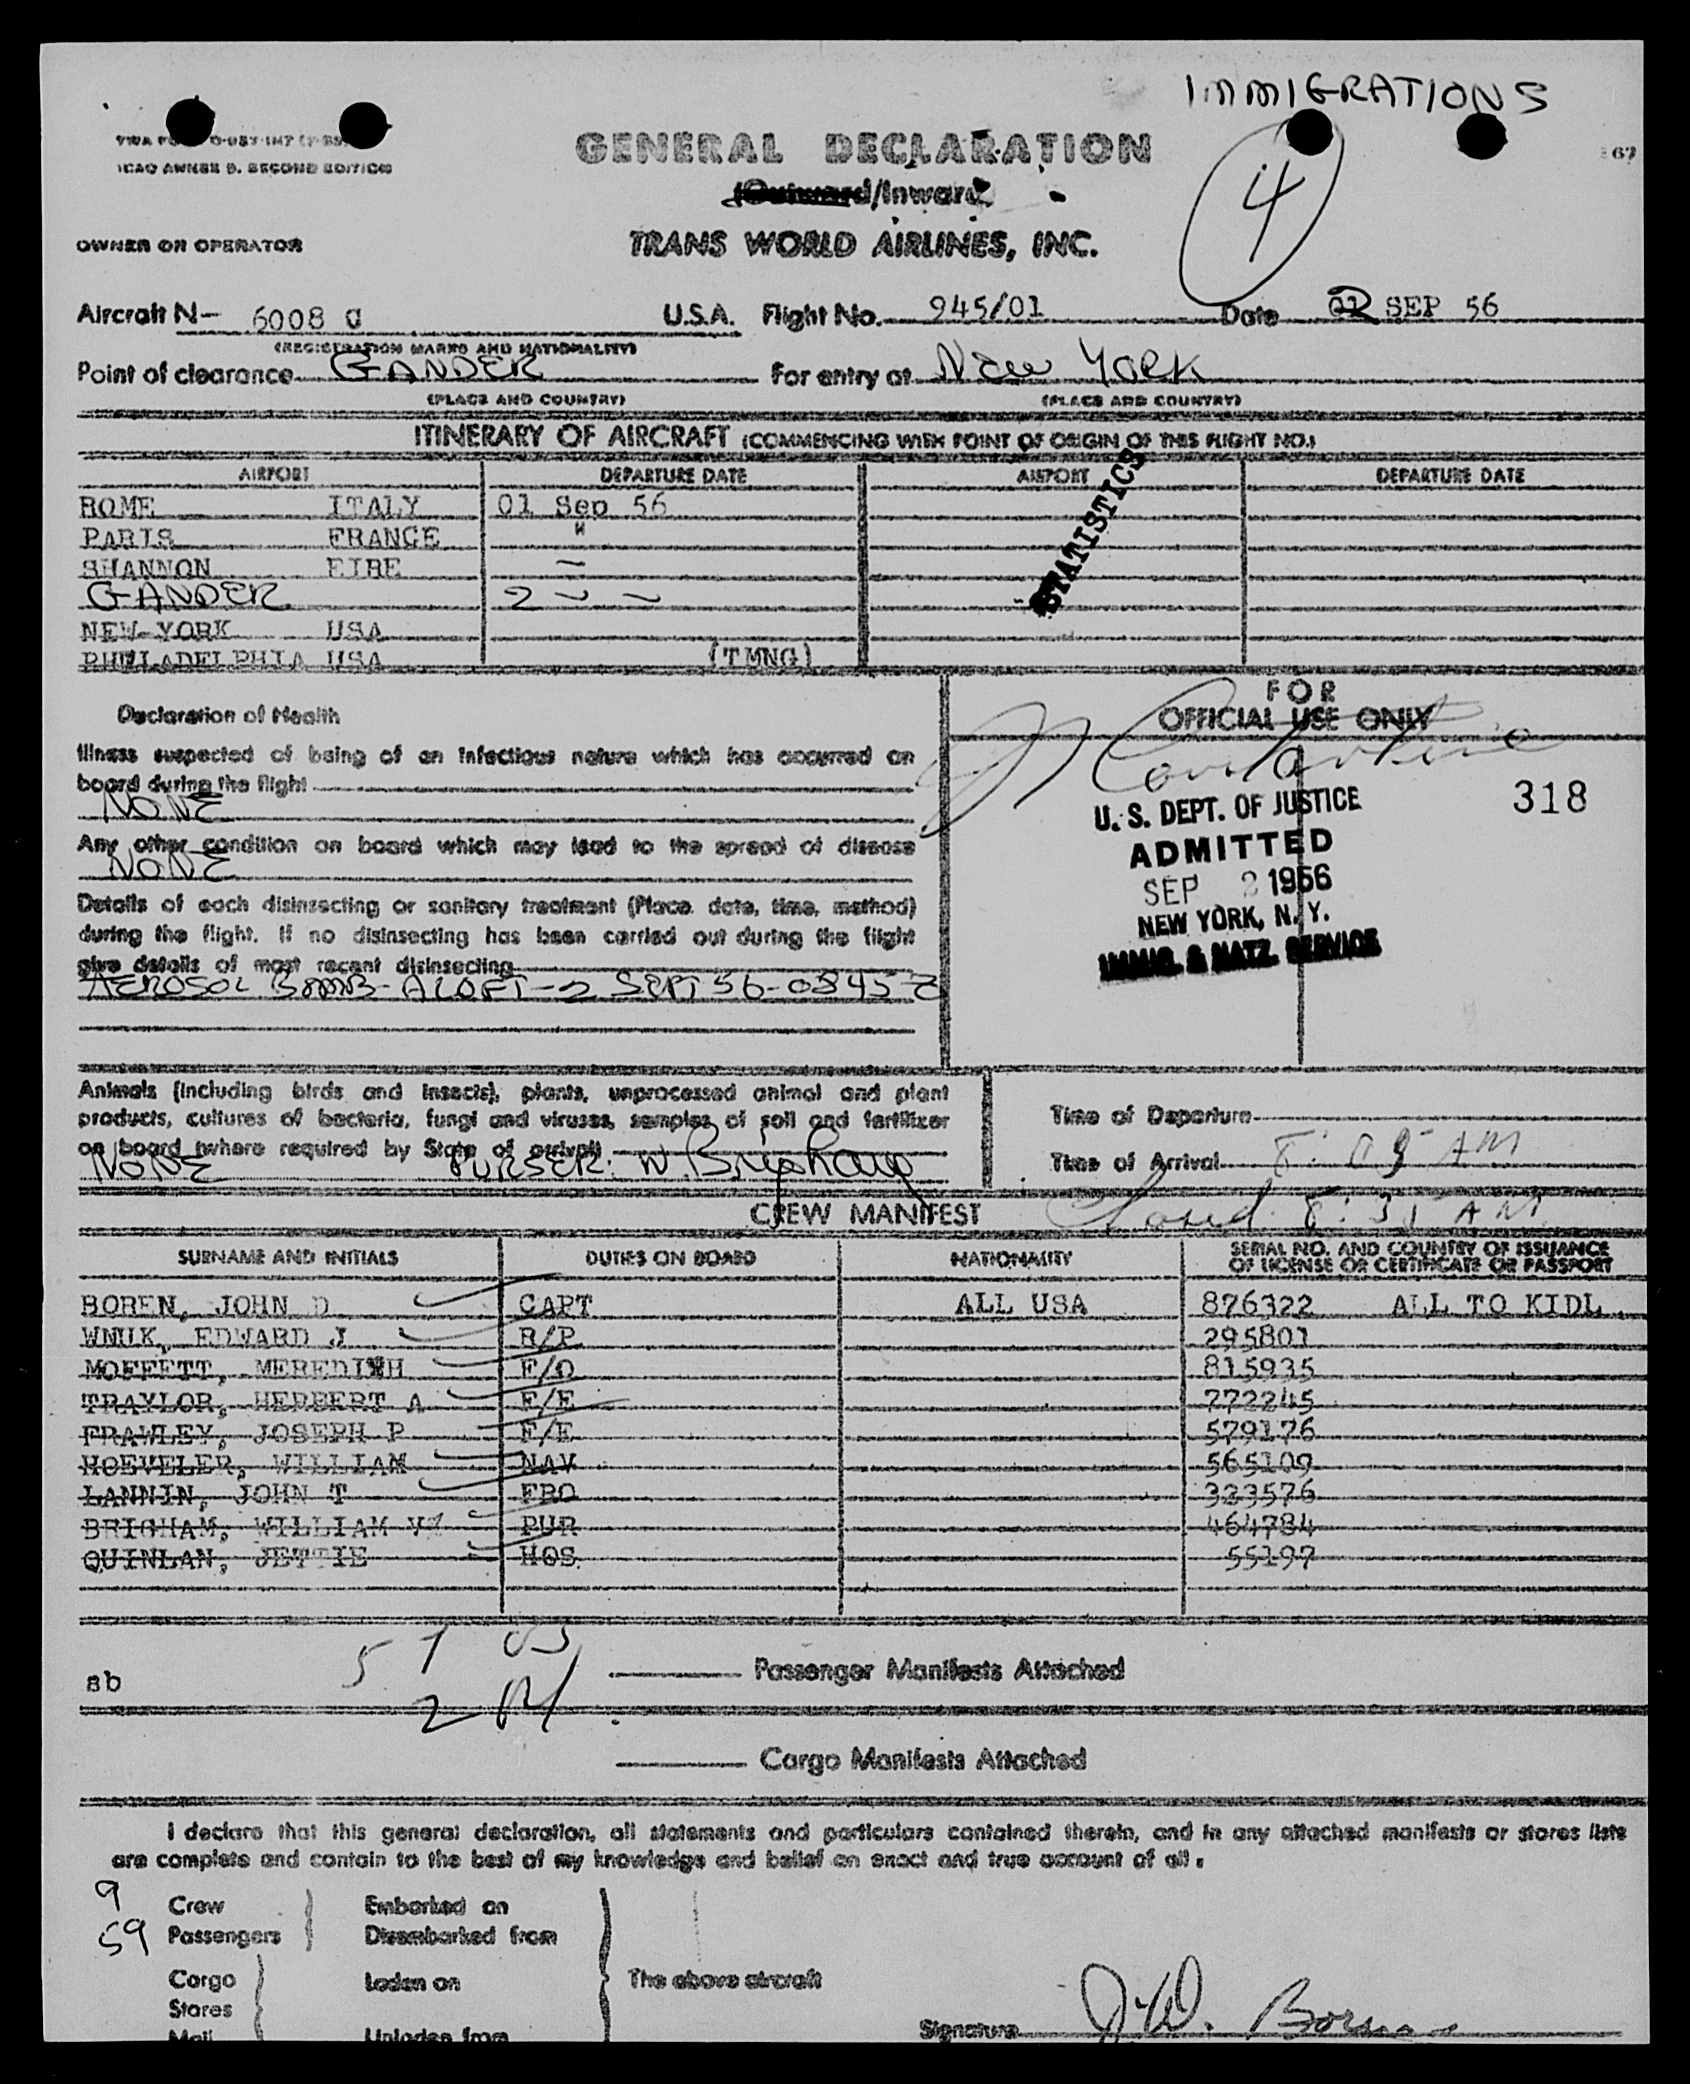 IMMIGRATIONS
ICAO ANNEX 9, SECOND EDITION
GENERAL DECLARATION
67
4
(Outward/Inward)
OWNER OR OPERATOR
TRANS WORLD AIRLINES, INC.
Aircraft N- 6008 C U.S.A. Flight No. 945/01 Date 02 SEP 56
(REGISTRATION MARKS AND NATIONALITY)
Point of clearance GANDER For entry at New York
(PLACE AND COUNTRY) (PLACE AND COUNTRY)
ITINERARY OF AIRCRAFT (COMMENCING WITH POINT OF ORIGIN OF THIS FLIGHT NO.)
AIRPORT DEPARTURE DATE AIRPORT DEPARTURE DATE
ROME ITALY 01 Sep 56
PARIS FRANCE "
SHANNON EIRE
GANDER 2
STATISTICS
NEW YORK USA
PHILADELPHIA USA (TMNG)
Declaration of Health
FOR
OFFICIAL USE ONLY
Illness suspected of being of an infectious nature which has occurred on
board during the flight
NONE
318
U. S. DEPT. OF JUSTICE
ADMITTED
SEP 2 1956
NEW YORK, N. Y.
IMMIG. & NATZ. SERVICE
Any other condition on board which may lead to the spread of disease
NONE
Details of each disinsecting or sanitary treatment (Place, date, time, method)
during the flight. If no disinsecting has been carried out during the flight
give details of most recent disinsecting
AEROSOL BOMB - ALOFT - 2 SEPT 56 - 0845 Z
Animals (including birds and insects), plants, unprocessed animal and plant
products, cultures of bacteria, fungi and viruses, samples of soil and fertilizer
on board (where required by State of arrival)
NONE PURSER: W. Brigham
Time of Departure
Time of Arrival 8:05 AM
8:35 AM
CREW MANIFEST
SURNAME AND INITIALS DUTIES ON BOARD NATIONALITY SERIAL NO. AND COUNTRY OF ISSUANCE
OF LICENSE OR CERTIFICATE OR PASSPORT
BOREN, JOHN D CAPT ALL USA 876322 ALL TO KIDL
WNUK, EDWARD J R/P 295801
MOFFETT, MEREDITH F/O 815935
TRAYLOR, HERBERT A F/E 772245
FRAWLEY, JOSEPH P F/E 579176
HOEVELER, WILLIAM NAV 565109
LANNIN, JOHN T FRO 323576
BRIGHAM, WILLIAM V PUR 464784
QUINLAN, JETTIE HOS 55197
sb
Passenger Manifests Attached
Cargo Manifests Attached
I declare that this general declaration, all statements and particulars contained therein, and in any attached manifests or stores lists
are complete and contain to the best of my knowledge and belief an exact and true account of all:
9 Crew Embarked on
59 Passengers Disembarked from
Cargo Laden on The above aircraft
Stores
Mail Unladen from
Signature J.D. Boren